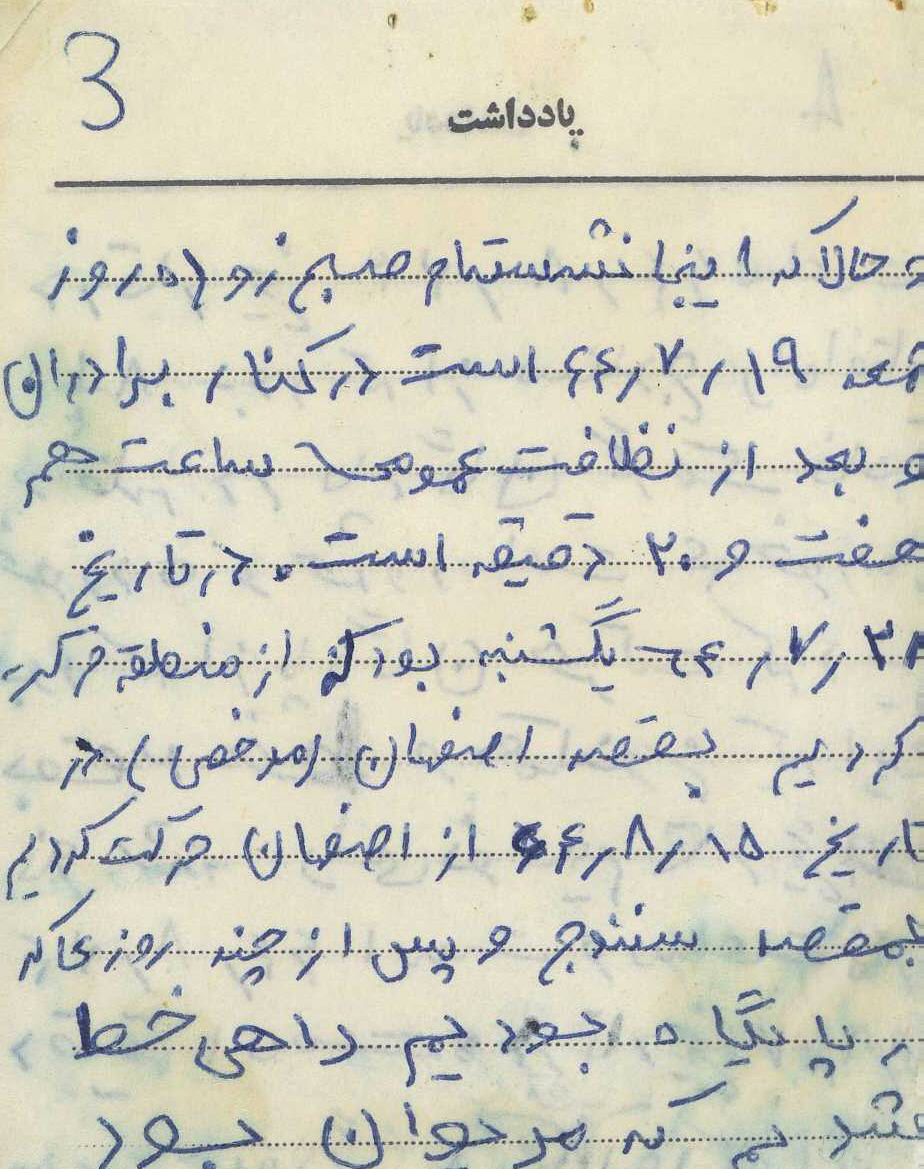 3
یادداشت
و حالا که اینجا نشسته‌ام صبح زود روز
جمعه ۱۹ ر ۷ ر ۶۴ است در کنار برادران
و بعد از نظافت عمومی ساعت هم
هفت و ۲۰ دقیقه است. در تاریخ
ر ۷ ر ۶۴ یکشنبه بود که از منطقه حرکت
کردیم بقصد اصفهان (مرخصی) در
تاریخ ۱۵ ر ۸ ر ۶۴ از اصفهان حرکت کردیم
بمقصد سنندج و پس از چند روز که
در پایگاه بودیم راهی خط
شدیم که مریوان بود